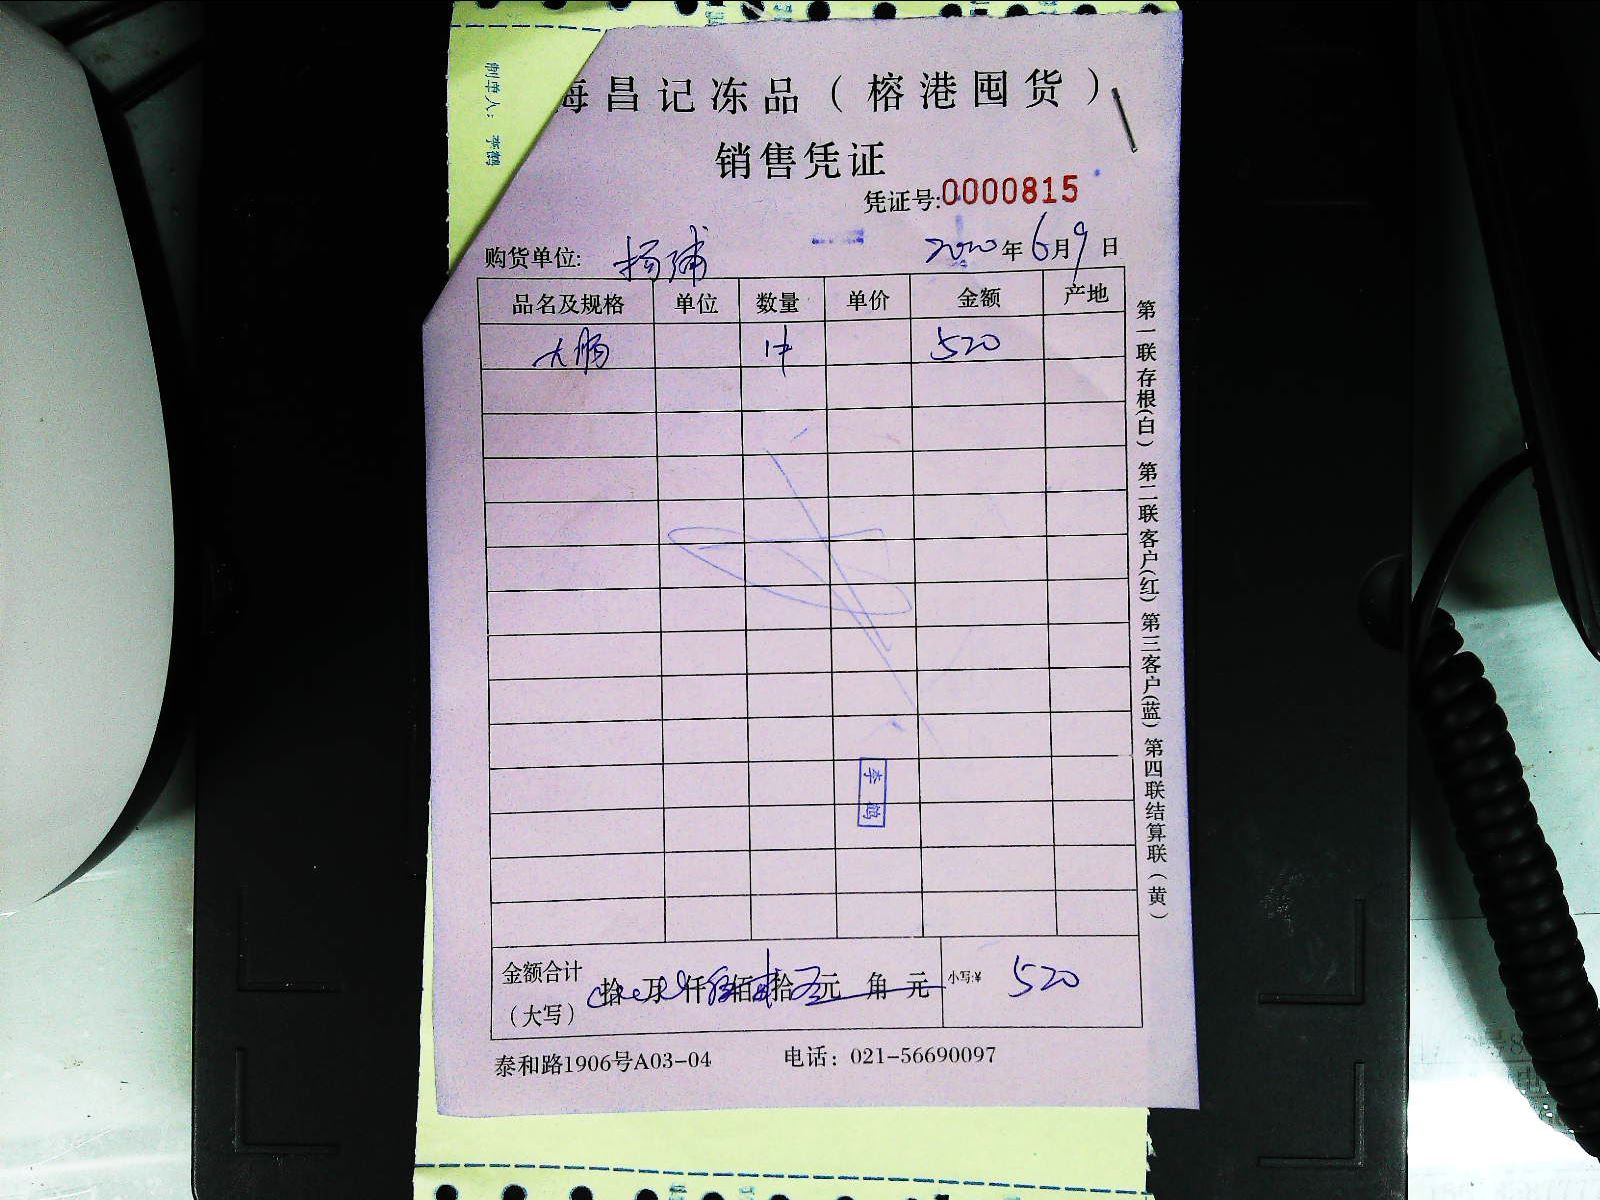 制单人： 李鹤
海昌记冻品（榕港囤货）
销售凭证
凭证号:0000815
购货单位: 杨浦 2020年6月9日
品名及规格 单位 数量 单价 金额 产地
大肠 1件 520
李鹤
金额合计（大写） 拾 万 仟 伍佰 贰拾 元 角 元 小写:¥ 520
泰和路1906号A03-04 电话：021-56690097
第一联存根(白) 第二联客户(红) 第三客户(蓝) 第四联结算联(黄)